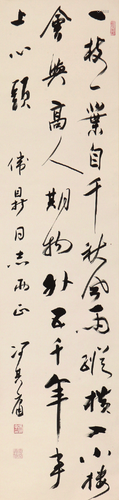 一枝一葉自千秋風雨縱橫入小樓
會與高人期物外五千年事
上心頭
偉鼎同志雨正
馮其庸